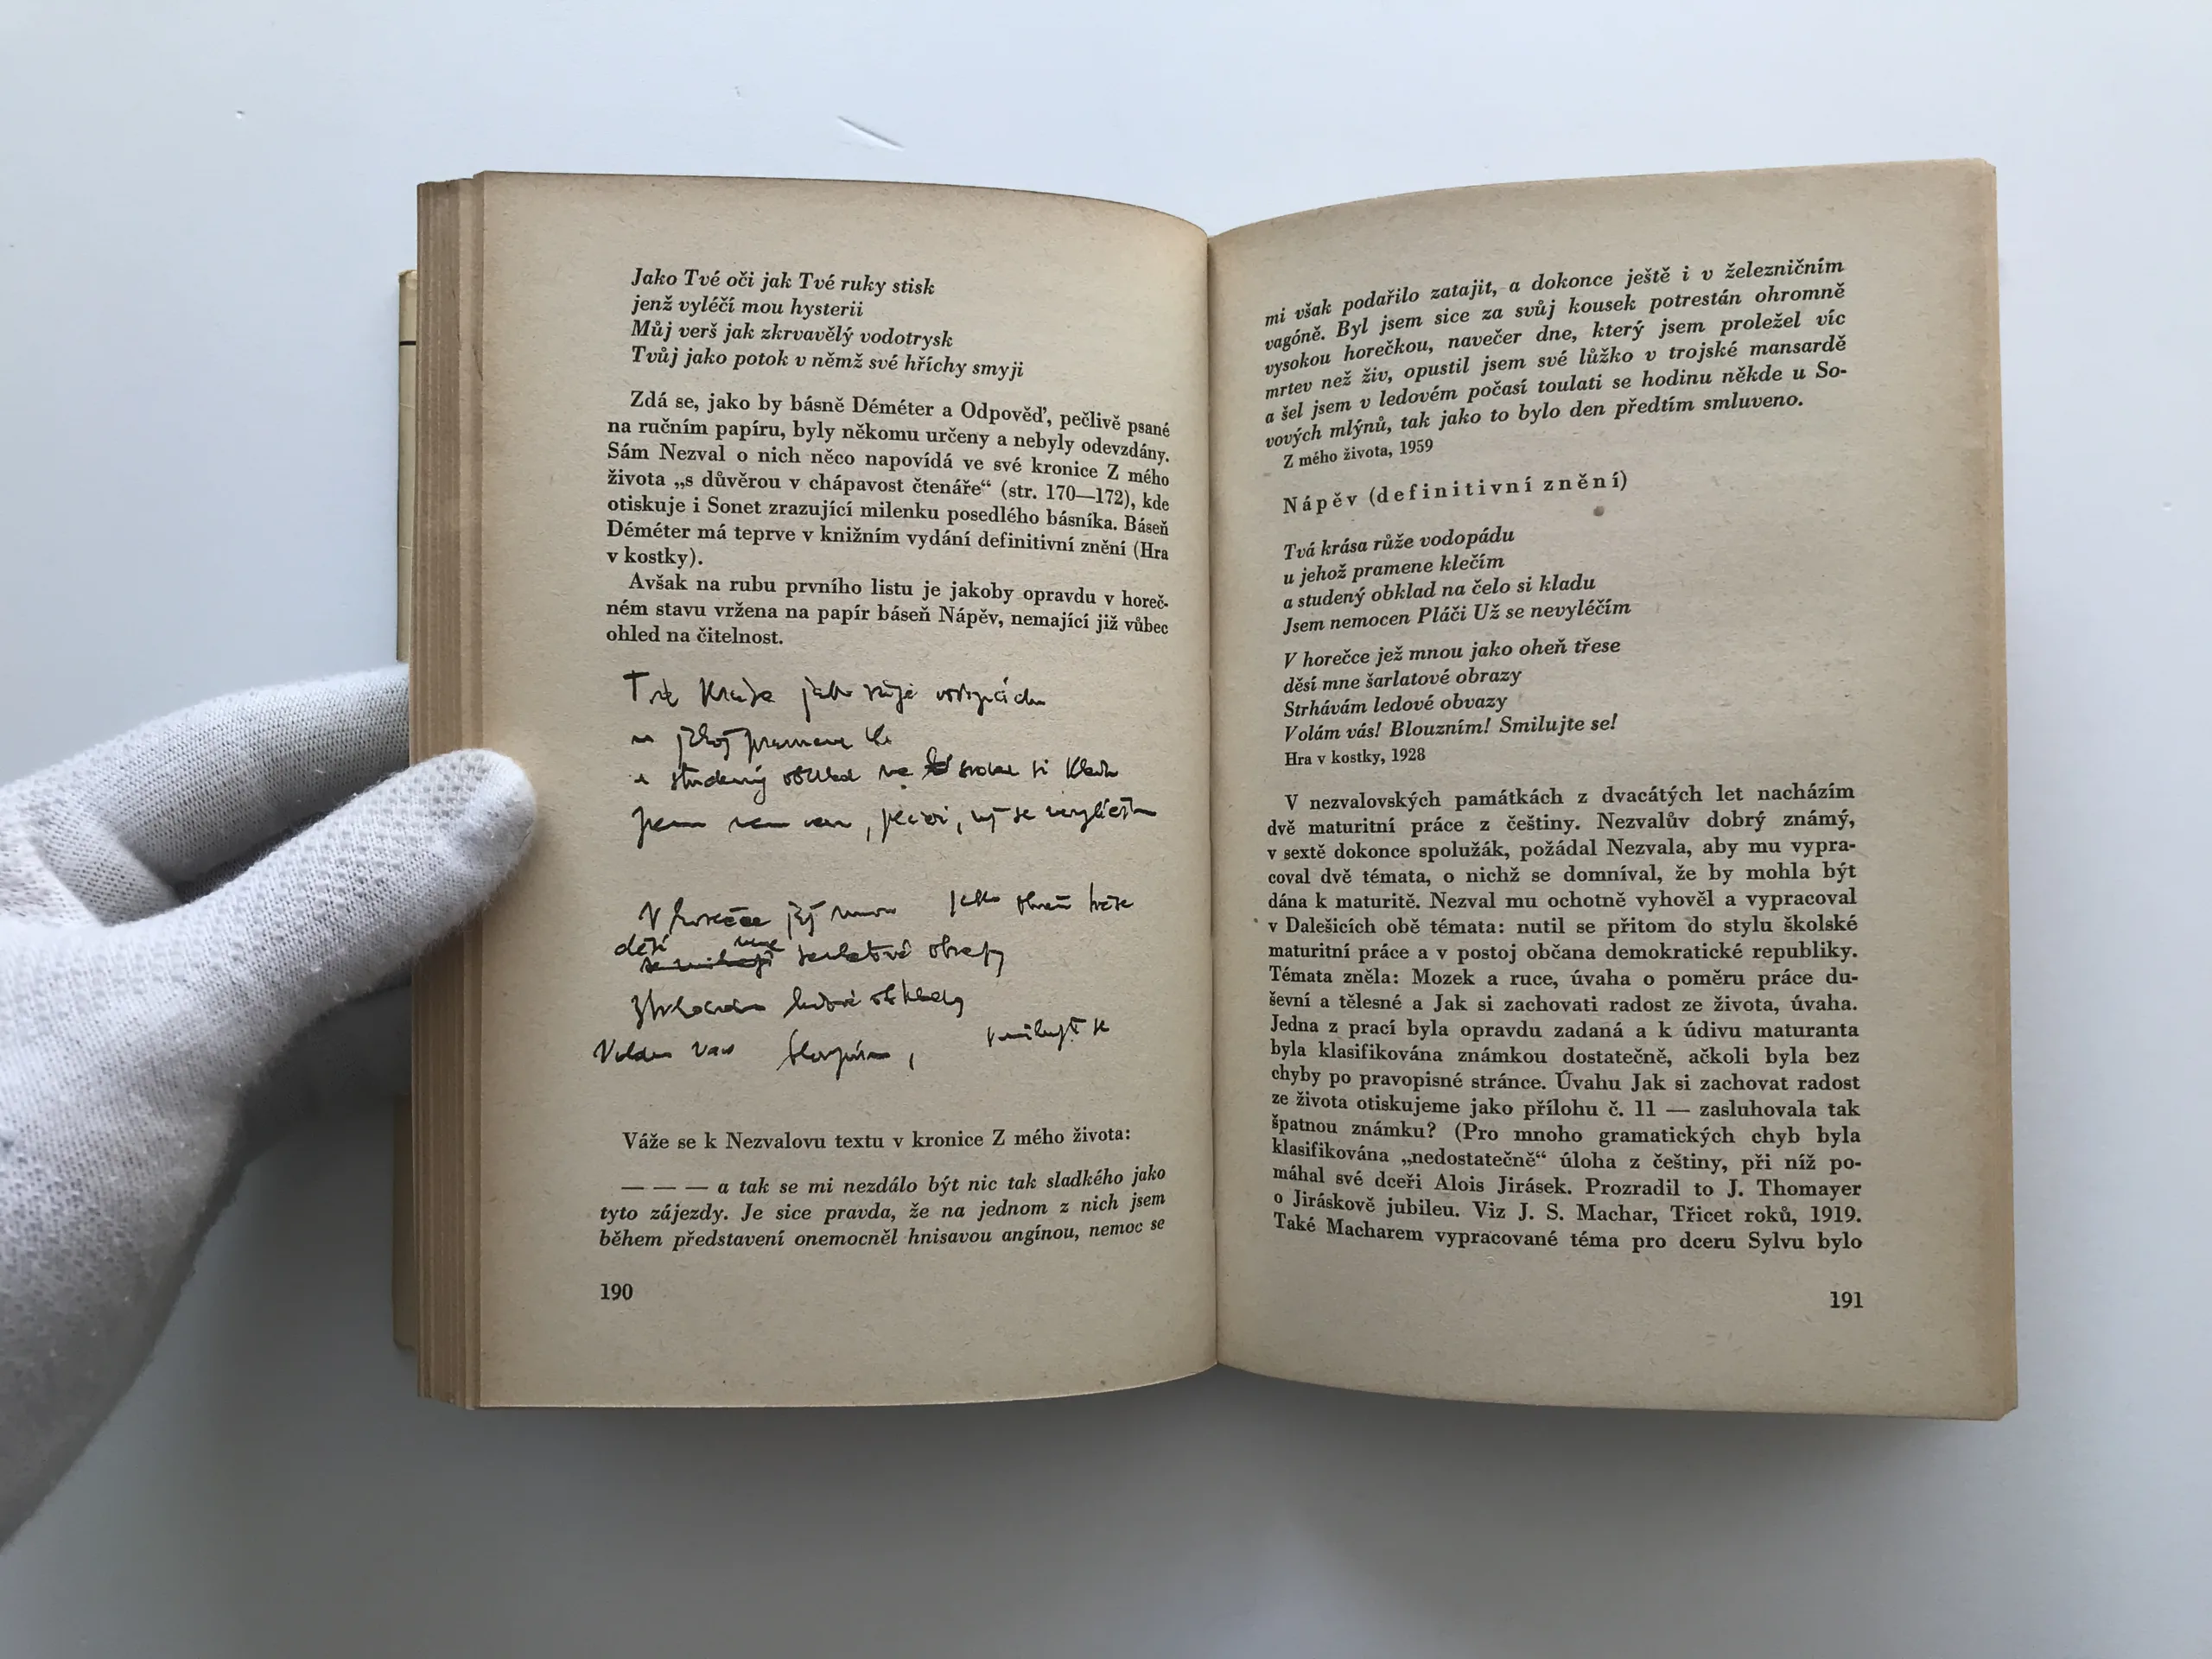 Jako Tvé oči jak Tvé ruky stisk
jenž vyléčí mou hysterii
Můj verš jak zkrvavělý vodotrysk
Tvůj jako potok v němž své hříchy smyji
Zdá se, jako by básně Déméter a Odpověď, pečlivě psané
na ručním papíru, byly někomu určeny a nebyly odevzdány.
Sám Nezval o nich něco napovídá ve své kronice Z mého
života „s důvěrou v chápavost čtenáře“ (str. 170—172), kde
otiskuje i Sonet zrazující milenku posedlého básníka. Báseň
Déméter má teprve v knižním vydání definitivní znění (Hra
v kostky).
Avšak na rubu prvního listu je jakoby opravdu v horeč-
ném stavu vržena na papír báseň Nápěv, nemající již vůbec
ohled na čitelnost.
Tvá krása jako růže vodopádu
u jehož pramene kle
a studený obklad na srdce si kladu
Jsem nemocen, pláči, už se nevyléčím
V horečce jež mnou jako oheň třese
děsí mne šarlatové obrazy
Strhávám ledové obklady
Volám vás blouzním, smilujte se
Váže se k Nezvalovu textu v kronice Z mého života:
— — — a tak se mi nezdálo být nic tak sladkého jako
tyto zájezdy. Je sice pravda, že na jednom z nich jsem
během představení onemocněl hnisavou angínou, nemoc se
190
mi však podařilo zatajit, a dokonce ještě i v železničním
vagóně. Byl jsem sice za svůj kousek potrestán ohromně
vysokou horečkou, navečer dne, který jsem proležel víc
mrtev než živ, opustil jsem své lůžko v trojské mansardě
a šel jsem v ledovém počasí toulati se hodinu někde u So-
vových mlýnů, tak jako to bylo den předtím smluveno.
Z mého života, 1959
Nápěv (definitivní znění)
Tvá krása růže vodopádu
u jehož pramene klečím
a studený obklad na čelo si kladu
Jsem nemocen Pláči Už se nevyléčím
V horečce jež mnou jako oheň třese
děsí mne šarlatové obrazy
Strhávám ledové obvazy
Volám vás! Blouzním! Smilujte se!
Hra v kostky, 1928
V nezvalovských památkách z dvacátých let nacházím
dvě maturitní práce z češtiny. Nezvalův dobrý známý,
v sextě dokonce spolužák, požádal Nezvala, aby mu vypra-
coval dvě témata, o nichž se domníval, že by mohla být
dána k maturitě. Nezval mu ochotně vyhověl a vypracoval
v Dalešicích obě témata: nutil se přitom do stylu školské
maturitní práce a v postoj občana demokratické republiky.
Témata zněla: Mozek a ruce, úvaha o poměru práce du-
ševní a tělesné a Jak si zachovati radost ze života, úvaha.
Jedna z prací byla opravdu zadaná a k údivu maturanta
byla klasifikována známkou dostatečně, ačkoli byla bez
chyby po pravopisné stránce. Úvahu Jak si zachovat radost
ze života otiskujeme jako přílohu č. 11 — zasluhovala tak
špatnou známku? (Pro mnoho gramatických chyb byla
klasifikována „nedostatečně“ úloha z češtiny, při níž po-
máhal své dceři Alois Jirásek. Prozradil to J. Thomayer
o Jiráskově jubileu. Viz J. S. Machar, Třicet roků, 1919.
Také Macharem vypracované téma pro dceru Sylvu bylo
191